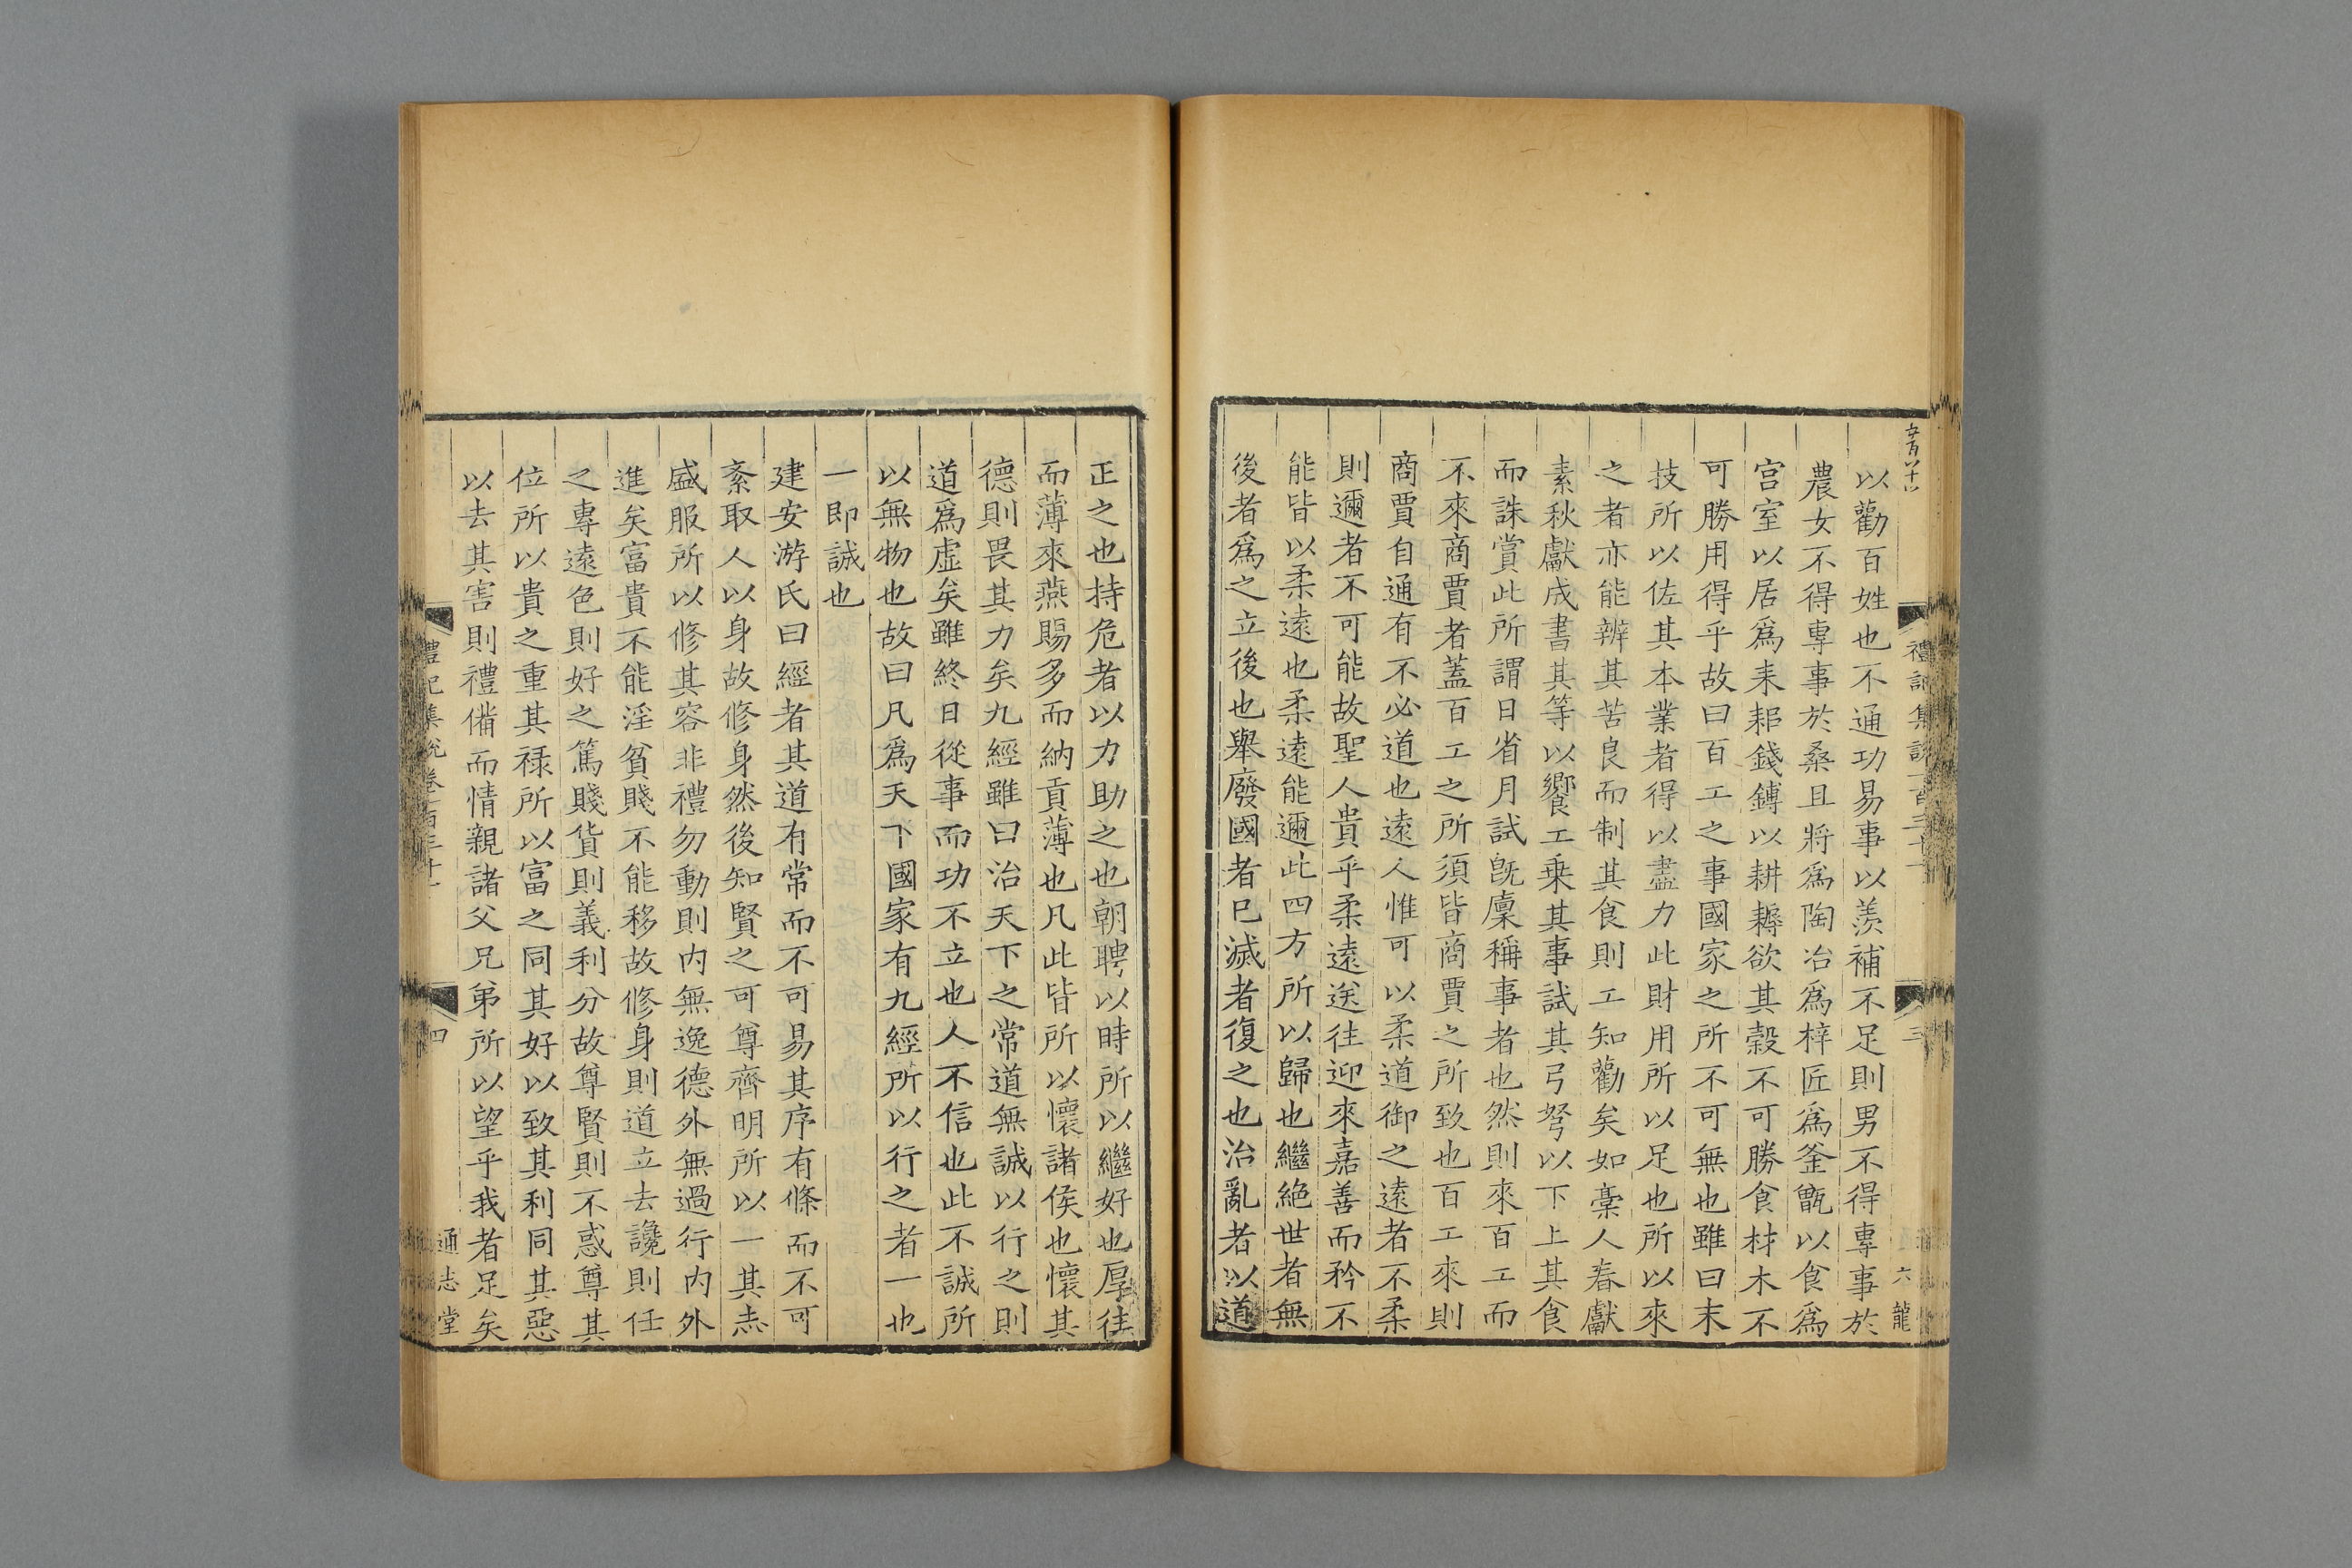 以勸百姓也不通功易事以羨補不足則男不得專事於
農女不得專事於桑且將爲陶冶爲梓匠爲釜甑以食爲
宫室以居爲耒耜錢鏄以耕耨欲其榖不可勝食材木不
可勝用得乎故曰百工之事國家之所不可無也雖曰末
技所以佐其本業者得以盡力此財用所以足也所以來
之者亦能辨其苦良而制其食則工知勸矣如稾人春獻
素秋獻成書其等以饗工乗其事試其弓弩以下上其食
而誅賞此所謂日省月試旣廩稱事者也然則來百工而
不來商賈者蓋百工之所須皆商賈之所致也百工來則
商賈自通有不必道也遠人惟可以柔道御之遠者不柔
則邇者不可能故聖人貴乎柔遠送往迎來嘉善而矜不
能皆以柔遠也柔遠能邇此四方所以歸也繼絶世者無
後者爲之立後也舉廢國者已滅者復之也治亂者以道
禮記集說
三
六
龍
正之也持危者以力助之也朝聘以時所以繼好也厚往
而薄來燕賜多而納貢薄也凡此皆所以懷諸侯也懷其
德則畏其力矣九經雖曰治天下之常道無誠以行之則
道爲虛矣雖終日從事而功不立也人不信也此不誠所
以無物也故曰凡爲天下國家有九經所以行之者一也
一即誠也
建安游氏曰經者其道有常而不可易其序有條而不可
紊取人以身故修身然後知賢之可尊齊明所以一其志
盛服所以修其容非禮勿動則内無逸德外無過行内外
進矣富貴不能淫貧賤不能移故修身則道立去讒則任
之專遠色則好之篤賤貨則義利分故尊賢則不惑尊其
位所以貴之重其禄所以富之同其好以致其利同其惡
以去其害則禮備而情親諸父兄弟所以望乎我者足矣
禮記集說卷一百三十一
四
通志堂